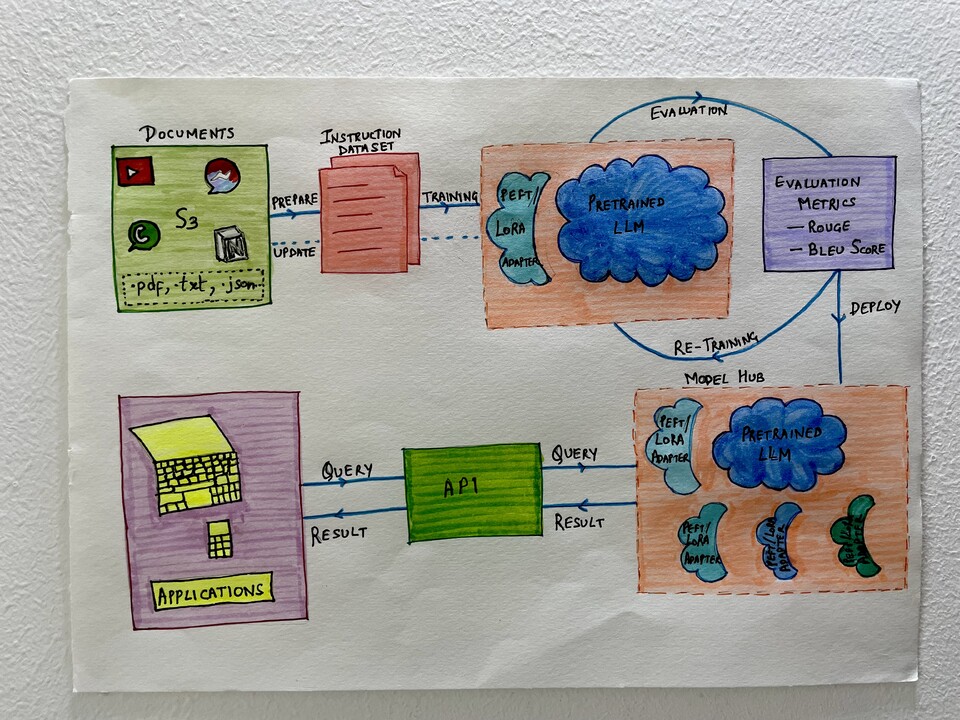 DOCUMENTS
S3
.pdf, .txt, .json
PREPARE
UPDATE
INSTRUCTION
DATASET
TRAINING
PEFT/
LORA
ADAPTER
PRETRAINED
LLM
EVALUATION
EVALUATION
METRICS
— ROUGE
— BLEU SCORE
RE-TRAINING
DEPLOY
MODEL HUB
PEFT/
LORA
ADAPTER
PRETRAINED
LLM
PEFT/
LORA
ADAPTER
PEFT/LORA
ADAPTER
PEFT/LORA
ADAPTER
QUERY
RESULT
API
QUERY
RESULT
APPLICATIONS